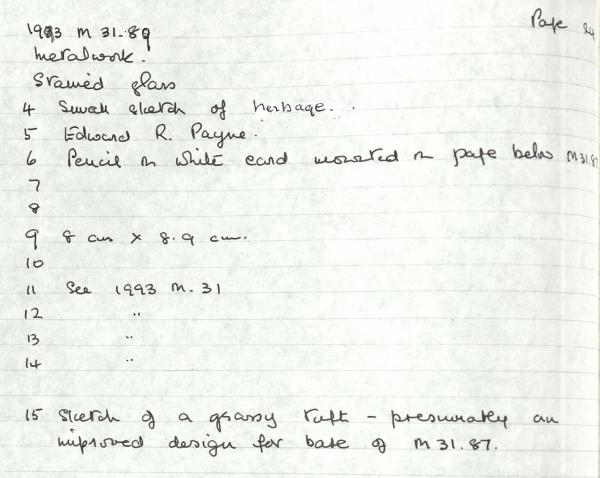 Page 24
1993 M 31.89
Metalwork.
Stained glass
4 Small sketch of herbage.
5 Edward R. Payne.
6 Pencil on white card mounted on page below M31.8
7
8
9 8 cms x 8.9 cm.
10
11 See 1993 M. 31
12 "
13 "
14 "
15 Sketch of a grassy tuft - presumably an
improved design for base of M 31.87.